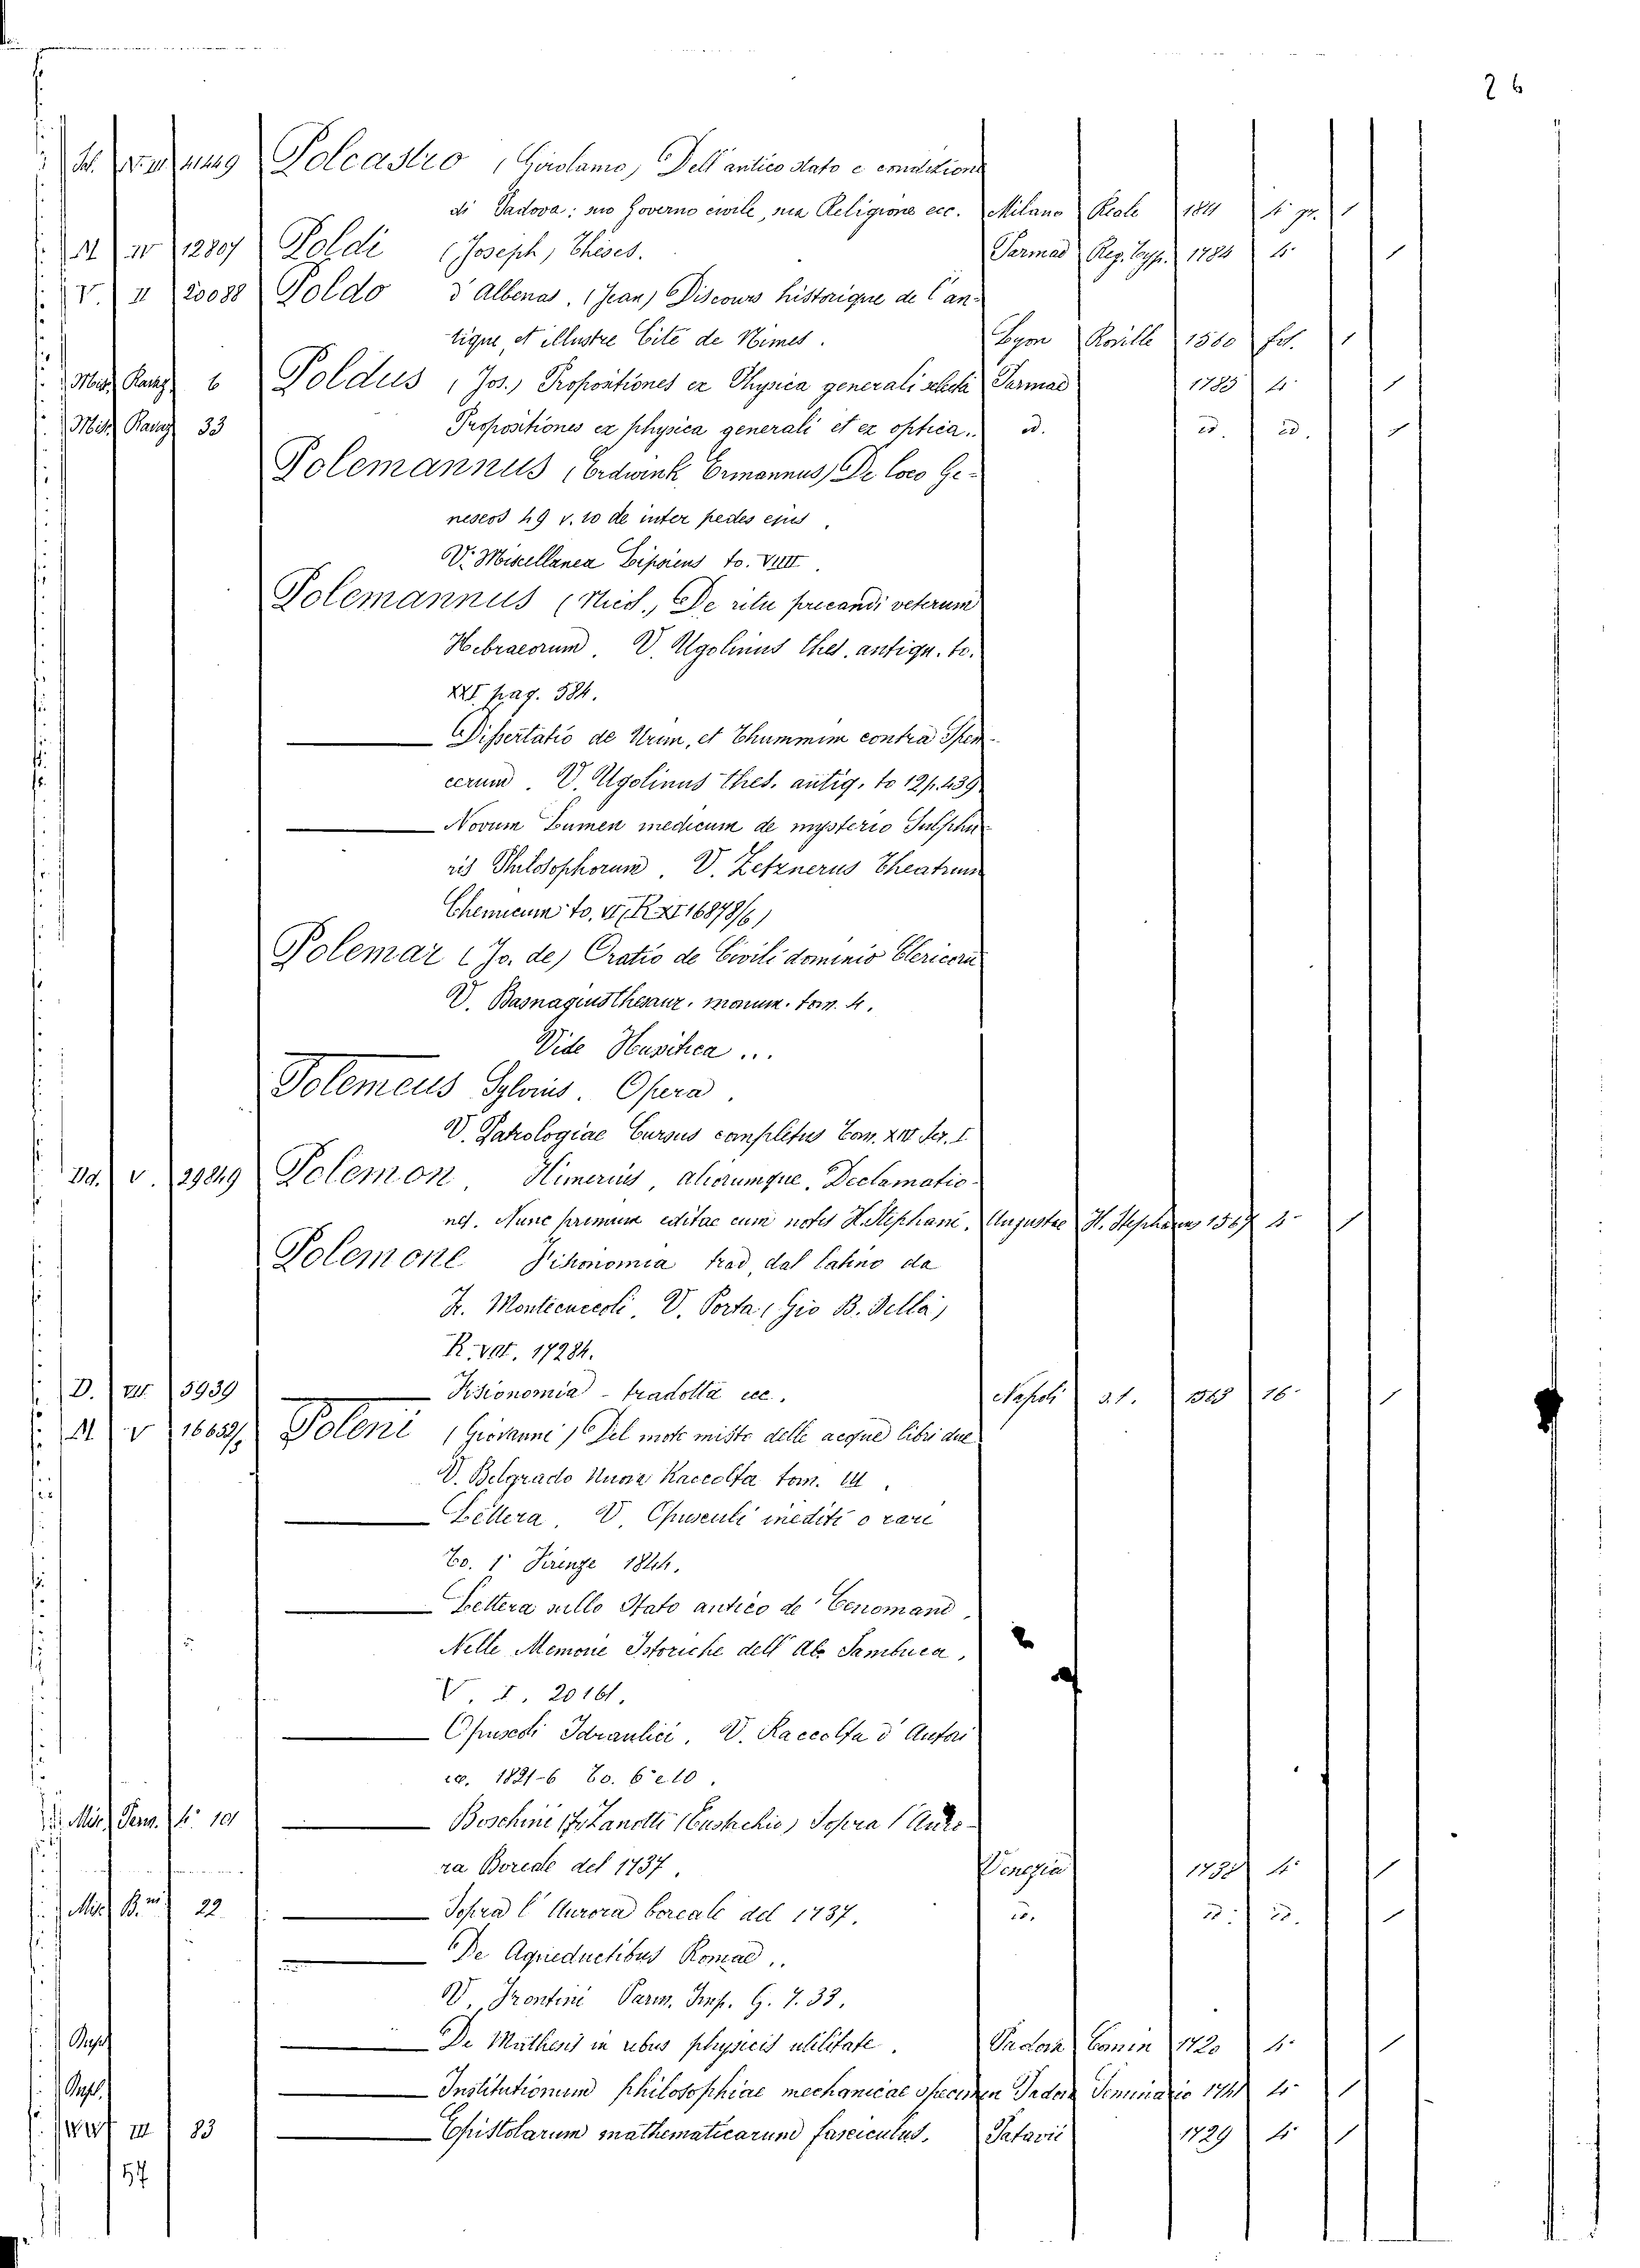 26
Polcastro (Girolamo) Dell'antico stato e condizione
di Padova; suo Governo civile, sua Religione ecc. Milano Reale 1811 4. gr. 1
M IV 12807 Poldi (Joseph) Theses. Parmae Reg. Typ. 1784 4. 1
V. II 20088 Poldo d'Albenas, (Jean) Discours historique de l'an-
tique, et illustre Cité de Nimes. Lyon Roville 1560 fol. 1
Misc. 6 Poldus (Jos.) Propositiones ex Physica generali selecta Parmae 1785 4. 1
Misc. 33 Propositiones ex physica generali et ex optica. id. id. id. 1
Polemannus (Erdwink Ermannus) De loco Ge-
neseos 49 v. 10 de inter pedes ejus.
V. Miscellanea Lipsiens to. VIII.
Polemannus (Nied., De ritu precandi veterum
Hebraeorum. V. Ugolinus Thes. antiqu. to.
XXI pag. 584.
Dissertatio de Urim, et Thummim contra Spen-
cerum. V. Ugolinus thes. antiq. to 12 p. 439
Novum Lumen medicum de mysterio Sulphu-
ris Philosophorum. V. Zetznerus Theatrum
Chemicum to. VI (R XI 16878/6)
Polemar (Jo. de) Oratio de Civili dominio Clericoru
V. Basnagius thesaur. monum. tom. 4.
Vide Husitica ...
Polemeus Sylvius. Opera.
V. Patrologiae Cursus completus Tom. XIII Ser. I
Dd. V. 29849 Polemon, Himerius, aliorumque, Declamatio-
nes. Nunc primum editae cum notis H. Stephani. Augustae H. Stephanus 1567 4. 1
Polemone Fisionomia trad. dal latino da
Fr. Montecuccoli. V. Porta (Gio B. Della)
R. VIII. 17284.
D. VIII 5939 Fisionomia - tradotta ecc. Napoli s.t. 16. 1
M V Poleni (Giovanni) Del moto misto delle acque libri due
V. Belgrado Nuova Raccolta tom. III.
Lettera. V. Opusculi inediti o rari
To. 1° Firenze 1844.
Lettera sullo Stato antico de' Cenomani.
Nelle Memorie Istoriche dell' Ab. Sambuca.
V. I. 20161.
Opuscoli Idraulici. V. Raccolta d'Autori
ec. 1821-6 To. 6° e 10.
Misc. Parm. 4° 101 Boschini Zanotti (Eustachio) Sopra l'Auro-
ra Boreale del 1737. Venezia 1738 4. 1
Misc. 22 Sopra l'Aurora boreale del 1737. id. id. id. 1
De Aqueductibus Romae..
V. Frontini Parm. Imp. G. 7. 33.
De Mathesis in rebus physicis utilitate. Padova Conin 1720 4. 1
Institutionum philosophiae mechanicae specimen Padova Seminario 1741 4. 1
III 83 Epistolarum mathematicarum fasciculus. Patavii 1729 4. 1
57